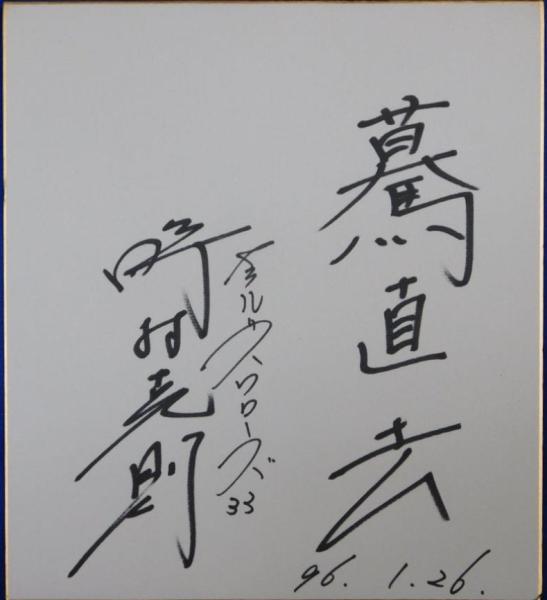 驀直去
ヤクルトスワローズ 33
野村克則
96. 1.26.